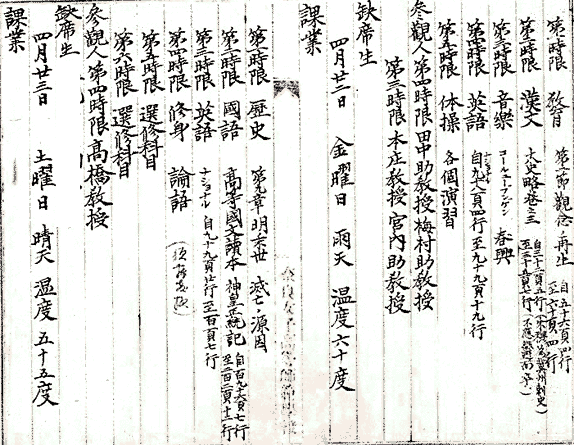 第二時限 教育 第一節觀念ノ再生 自五十六頁四行 至六十頁四行
第二時限 漢文 十八史略巻之三 自三十二頁五行 至三十五頁七行
第三時限 音樂 コールユーブンゲン 春興
第四時限 英語 自九十八頁四行至九十九頁十九行
第五時限 体操 各個演習
参觀人第四時限田中助教授梅村助教授
第三時限本庄教授宮内助教授
缺席生
四月廿二日 金曜日 雨天 温度六十度
課業
第一時限 歴史 第九章明末世 滅亡ノ源因
第二時限 國語 高等國文讀本 神皇正統記 自百九十六頁七行 至二百二頁十一行
第三時限 英語 ナショナル 自九十九頁廿行至一百一頁七行
第四時限 修身 論語
第五時限 選修科目
第六時限 選修科目
参觀人第四時限高橋教授
缺席生
四月廿三日 土曜日 晴天 温度五十五度
課業